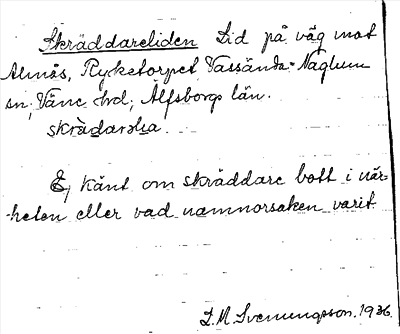 Skräddareliden Lid på väg mot
Almås, Ryketorpet Vassända-Naglum
sn, Väne hd, Älfsborgs län.
skrädarəlia
Ej känt om skräddare bott i när-
heten eller vad namnorsaken varit
S.M. Svenungsson. 1936.